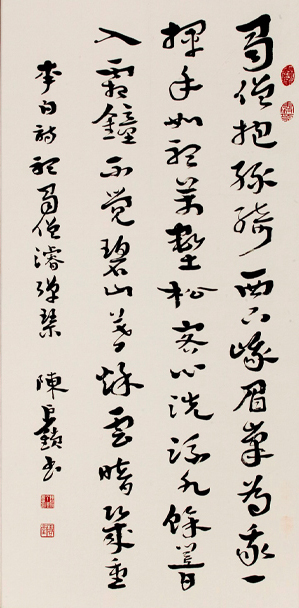 蜀僧抱綠綺西下峨眉峯為我一
揮手如聽萬壑松客心洗流水餘響
入霜鐘不覺碧山暮秋雲暗幾重
李白詩聽蜀僧濬彈琴 陳巨鎖書